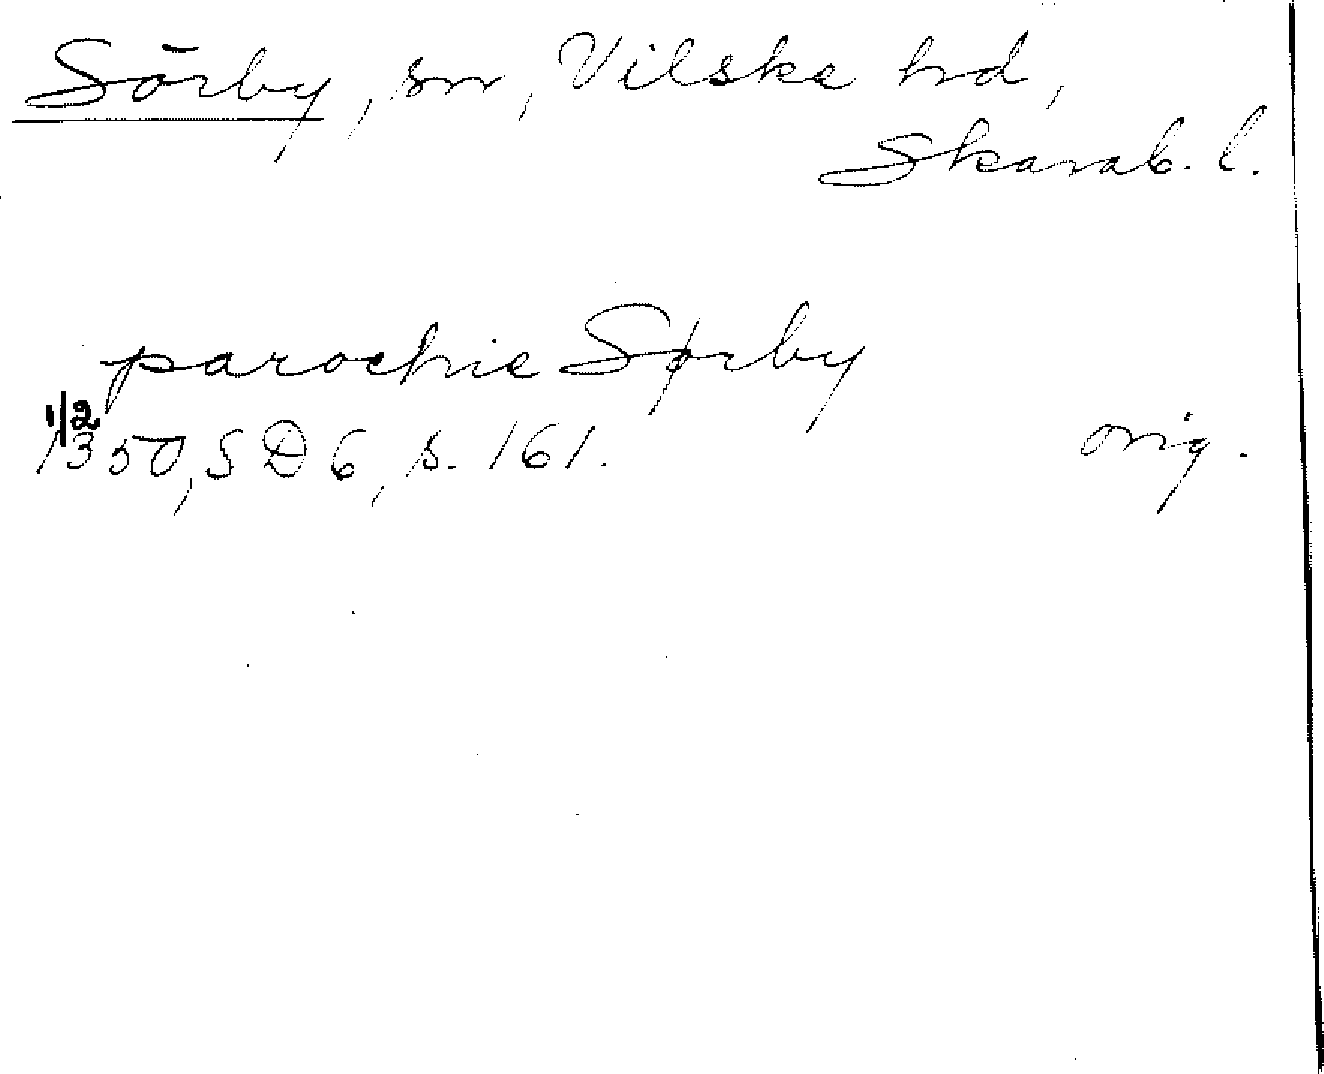 Sörby, sn, Vilske hd,
Skarab. l.
parochie Sørby
1/2
1350, SD 6, s. 161. orig.